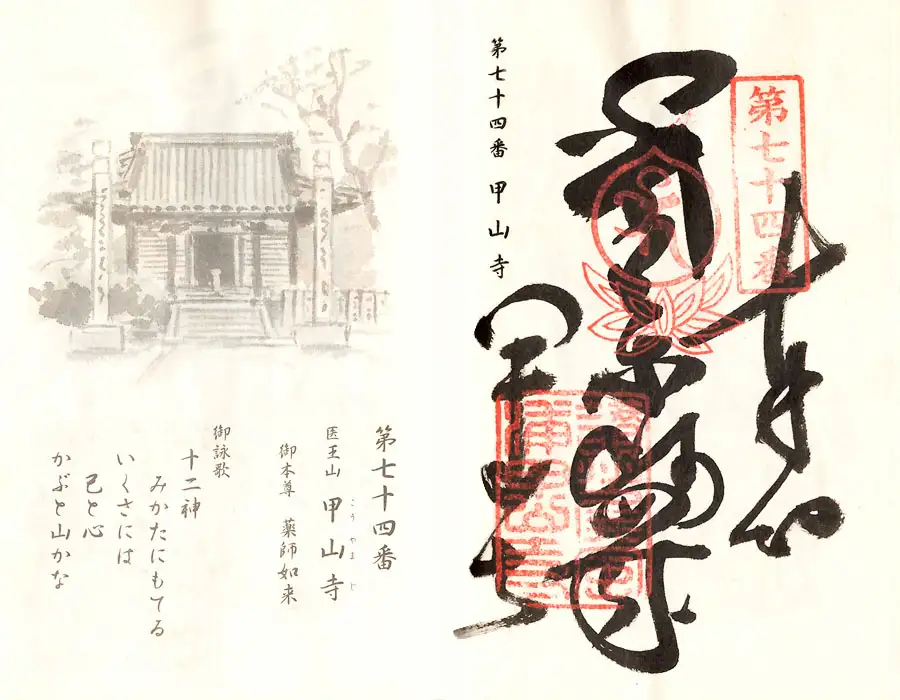 第七十四番
第七十四番 甲山寺
甲山寺
第七十四番
医王山 甲山寺
こうやまじ
御本尊 薬師如来
御詠歌
十二神
みかたにもてる
いくさには
己と心
かぶと山かな